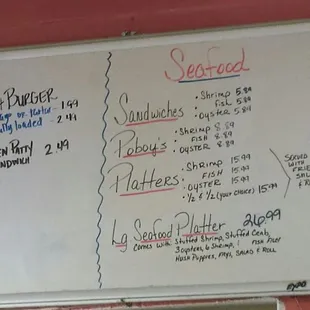 BURGER
or
1.99
fully loaded - 2.49
PATTY 2.49
Seafood
Sandwiches : Shrimp 5.89
fish 5.89
: OYSTER 5.89
Poboy's : SHRIMP 8.89
FISH 8.89
: OYSTER 8.89
Platters : SHRIMP 15.99
FISH 15.99
OYSTER 15.99
1/2 & 1/2 (your choice) 15.99
SERVED
WITH
Lg Seafood Platter 26.99
COMES WITH Stuffed Shrimp, Stuffed Crab,
3 oysters, 6 Shrimp, 1 FISH FILET
HUSH PUPPIES, FRYS, SALAD & ROLL
EXPO